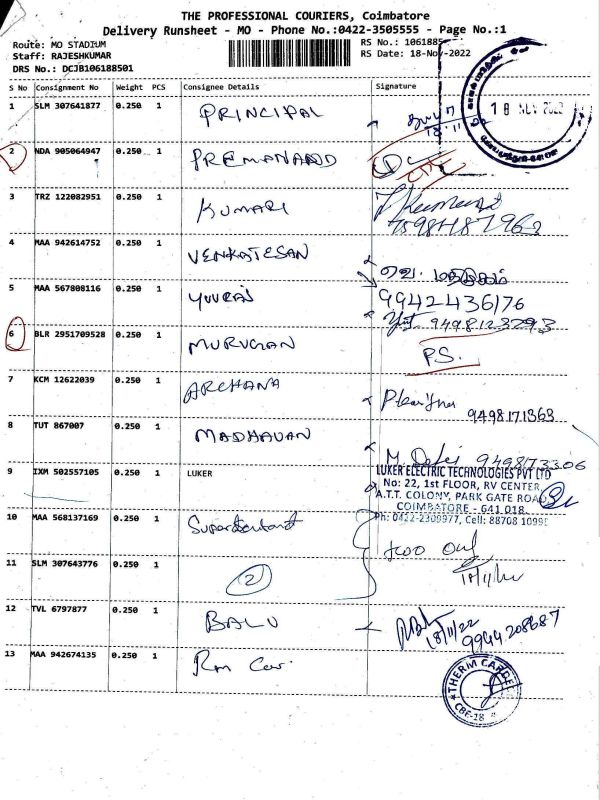 THE PROFESSIONAL COURIERS, Coimbatore
Delivery Runsheet - MO - Phone No.:0422-3505555 - Page No.:1
Route: MO STADIUM
Staff: RAJESHKUMAR
DRS No.: DCJB106188501
RS No.: 1061885
RS Date: 18-Nov-2022
S No Consignment No Weight PCS Consignee Details Signature
1 SLM 307641877 0.250 1 PRINCIPAL
18 NOV 2022
2 NDA 905064947 0.250 1 PREMANAND
3 TRZ 122082951 0.250 1 KUMARI
4 MAA 942614752 0.250 1 VENKATESAN
5 MAA 567808116 0.250 1 YUVRAJ 9942436176
9498123293
6 BLR 2951709528 0.250 1 MURUGAN P.S.
7 KCM 12622039 0.250 1 ARCHANA 9498171363
8 TUT 867007 0.250 1 MADHAVAN 9498173306
9 IXM 502557105 0.250 1 LUKER
LUKER ELECTRIC TECHNOLOGIES PVT LTD
No: 22, 1st FLOOR, RV CENTER,
A.T.T. COLONY, PARK GATE ROAD
COIMBATORE - 641 018.
Ph: 0422-2309977, Cell: 88708 10991
10 MAA 568137169 0.250 1
11 SLM 307643776 0.250 1 2 18/11/22
12 TVL 6797877 0.250 1 BALU 18/11/22
9944208687
13 MAA 942674135 0.250 1
THERM CARDE
CBE-18